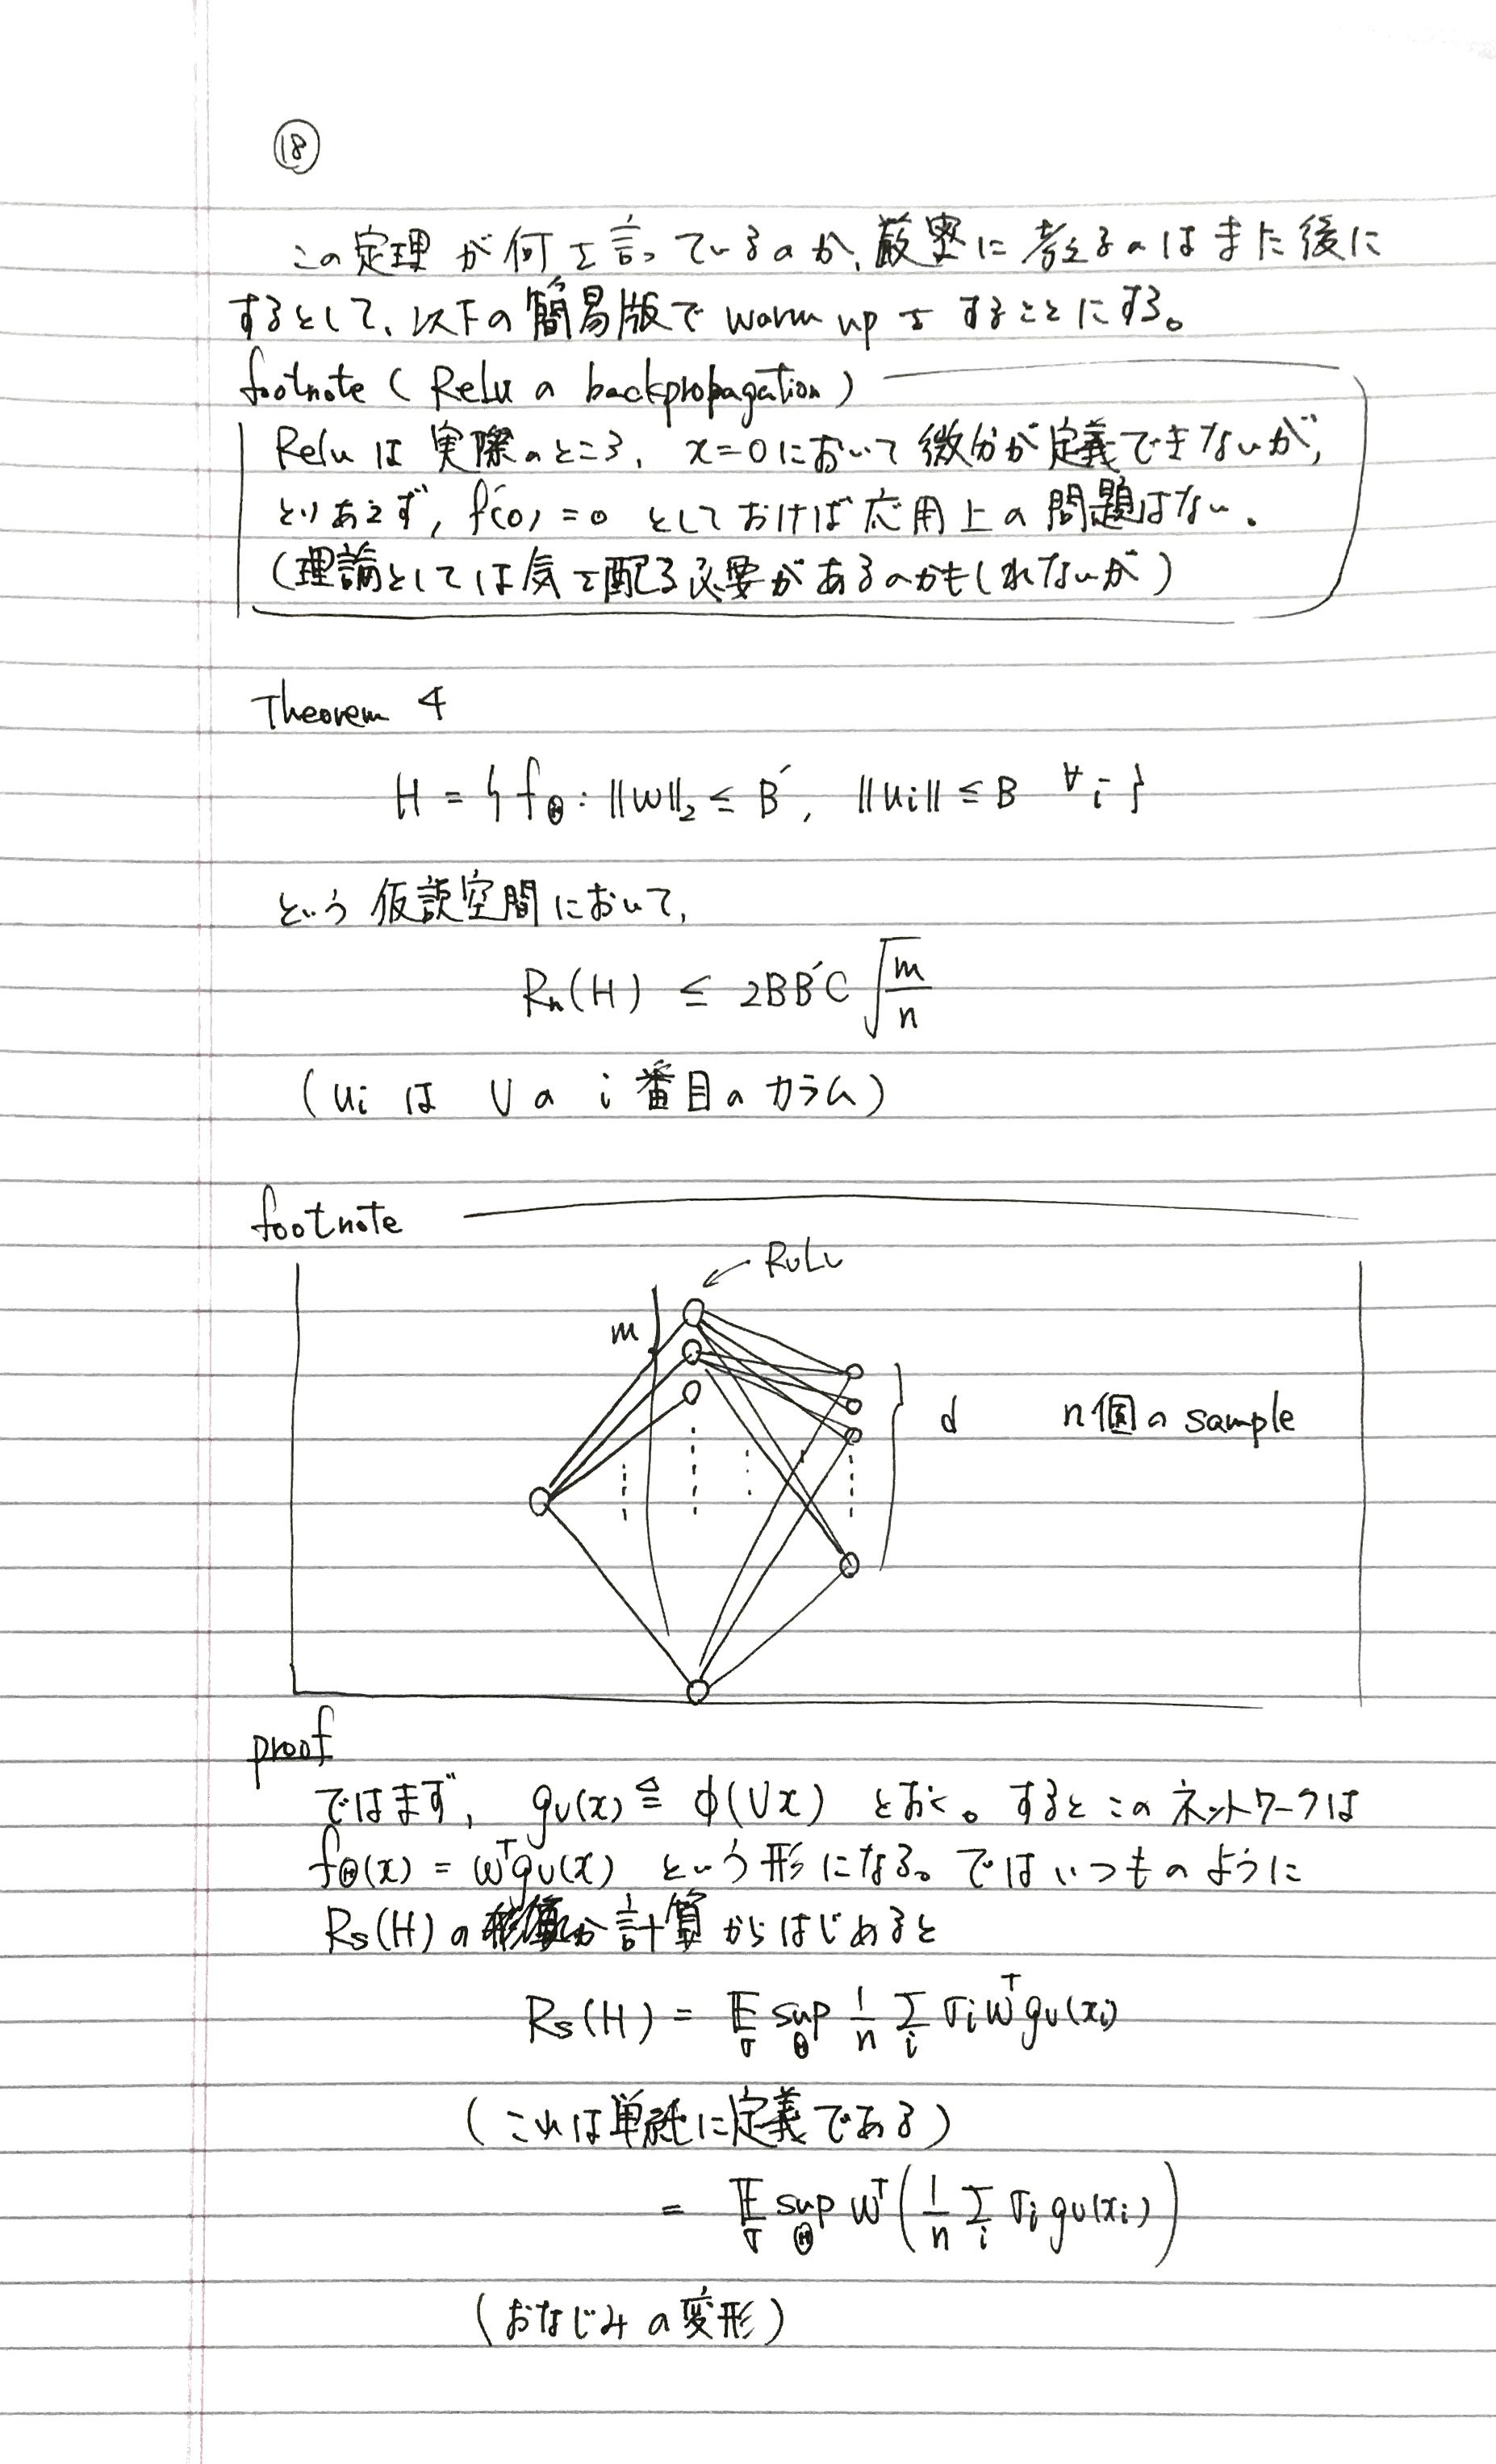 ⑱
この定理が何を言っているのか、厳密に考えるのはまた後に
するとして、以下の簡易版でwarm upをすることにする。
footnote (Reluのbackpropagation)
Reluは実際のところ、x=0において微分が定義できないが、
とりあえず、f'(0)=0としておけば応用上の問題はない。
(理論としては気を配る必要があるのかもしれないが)
Theorem 4
H = { f_Θ : ||w||₂ ≤ B′, ||ui|| ≤ B ∀i }
という仮説空間において、
Rn(H) ≤ 2BB′C √(m/n)
(uiはUのi番目のカラム)
footnote
ReLU
m
d n個のsample
proof
ではまず、gU(x) ≜ φ(Ux) とおく。するとこのネットワークは
f_Θ(x) = wᵀgU(x) という形になる。ではいつものように
Rs(H)の計算からはじめると
Rs(H) = E_σ sup_Θ 1/n Σ_i σi wᵀgU(xi)
(これは単純に定義である)
= E_σ sup_Θ wᵀ(1/n Σ_i σi gU(xi))
(おなじみの変形)